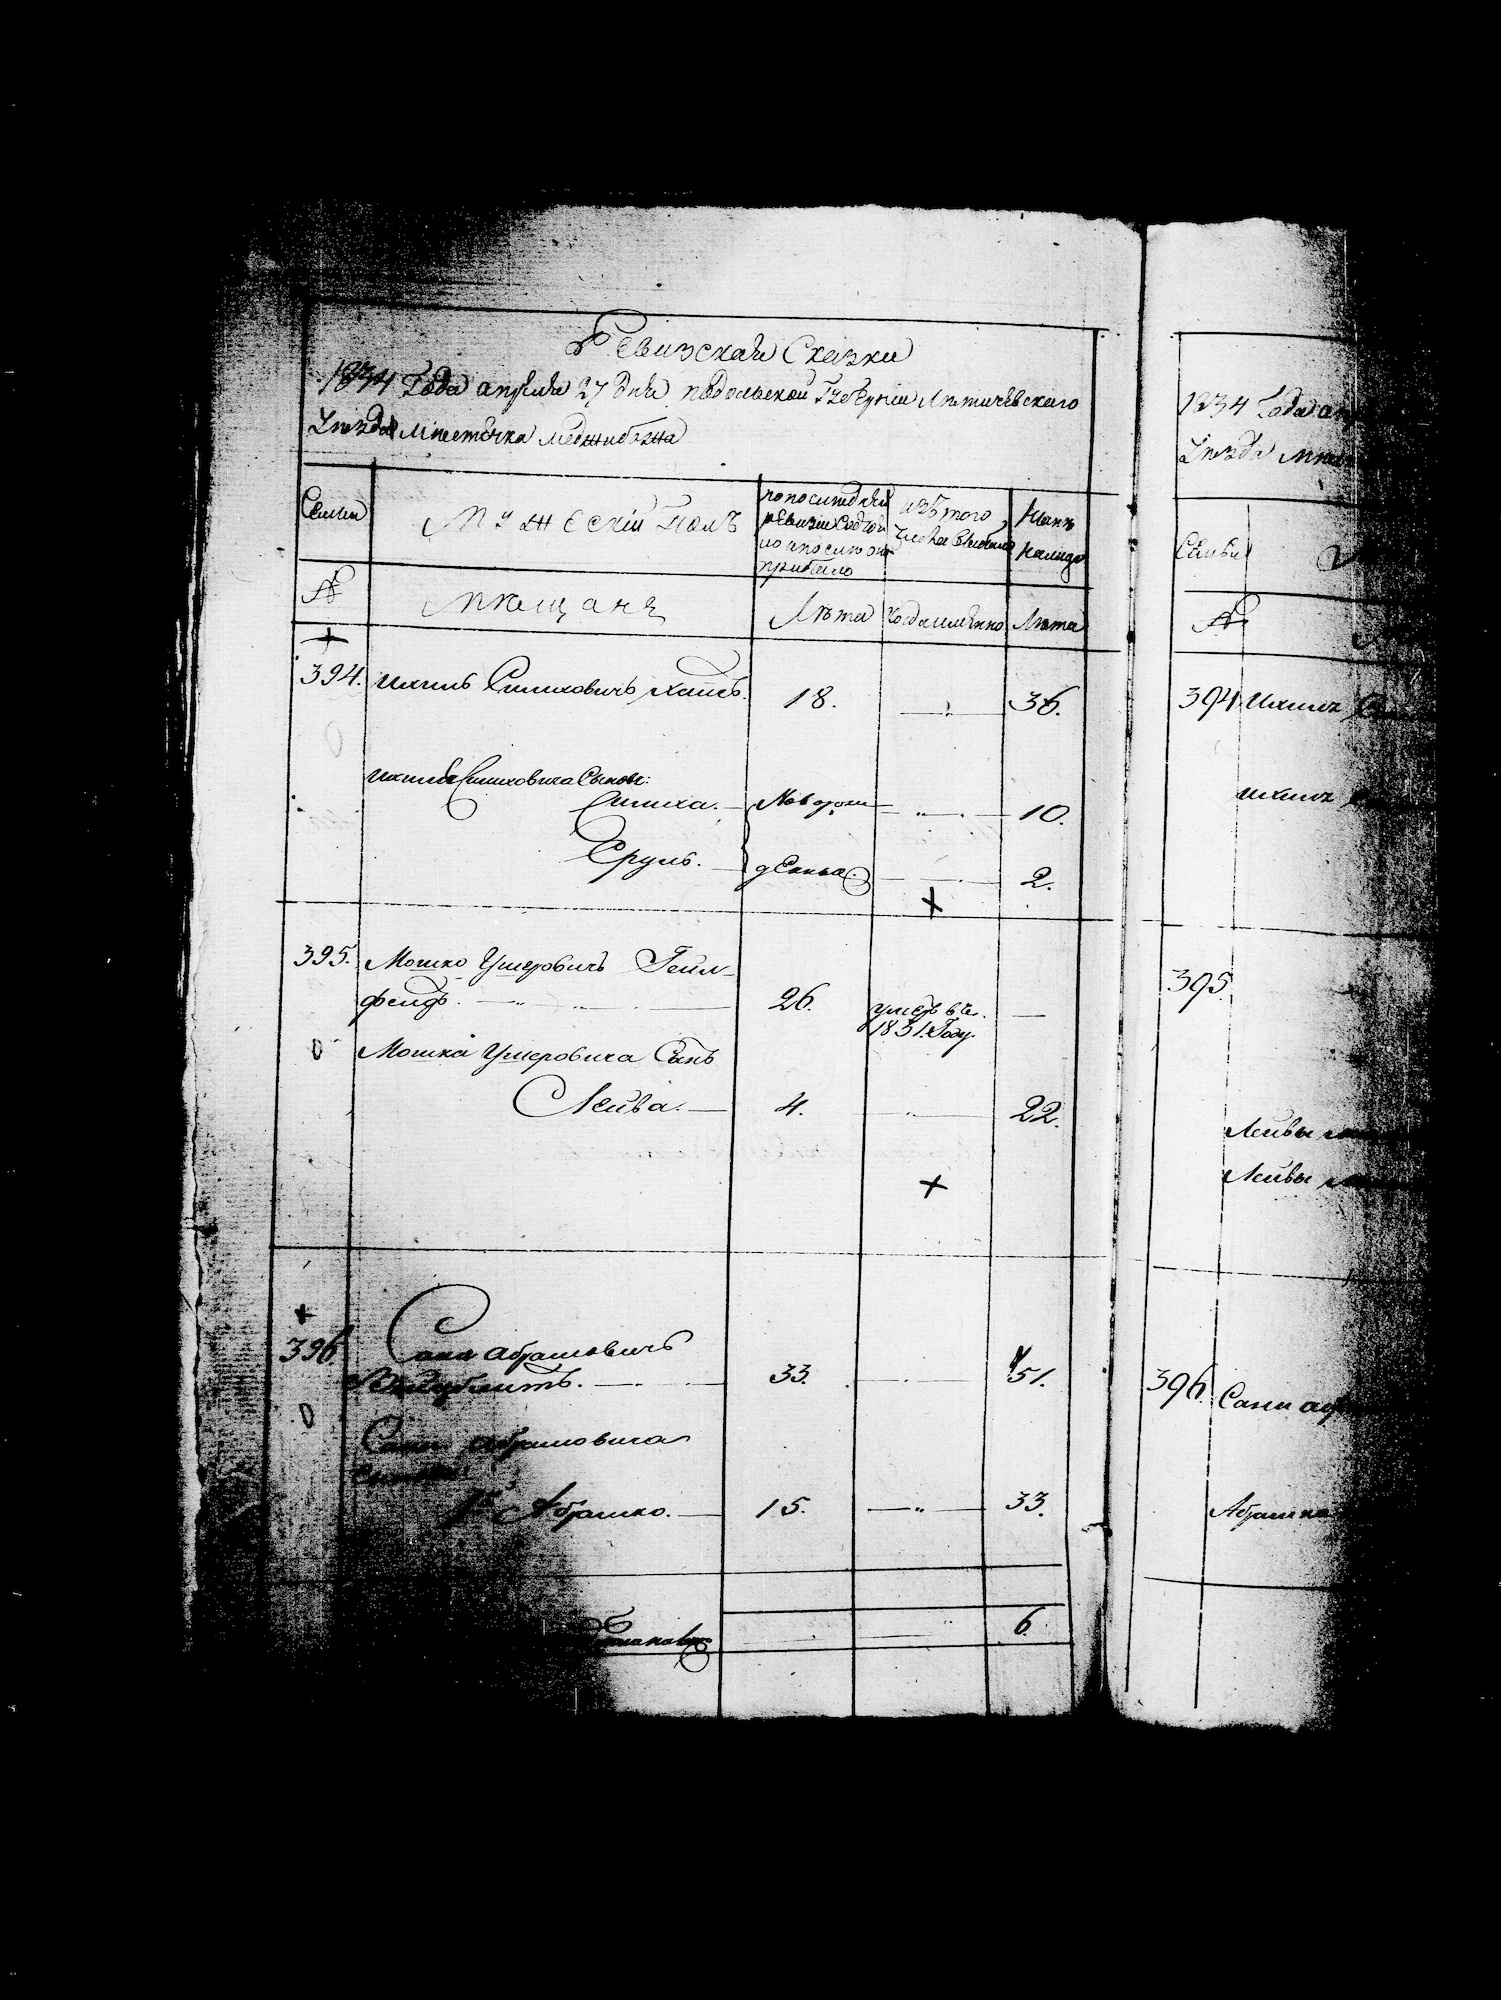 Ревизская Сказка
1834 Года апреля 27 дня подольской Губерніи Летичевскаго
Уезда Местечка Меджибожа
Семьи
Мужескій Полъ
по последней
ревизіи состояло
и после оной
прибыло
изъ того
числа выбыло
Ныне
налицо
№
мещане
Лета
когда именно
Лета
394.
ихиль Симховичъ
18.
36.
ихиля Симховича Сыновья:
Симха.
Новорож
10.
Сруль.
денные
2.
395.
Мошко Умеровичъ Гейл-
фенд.
26.
умеръ въ
1831 Году
Мошка Умеровича Сынъ
Лейба.
4.
22.
396
Сана абрамовичъ
33.
51.
Сани абрамовича
1й Абрашко.
15.
33.
6.
1834 Года ап
Уезда
Семьи
№
394
ихиля
ихиля
395.
Лейбы
Лейбы
396
Сани
Абрашка